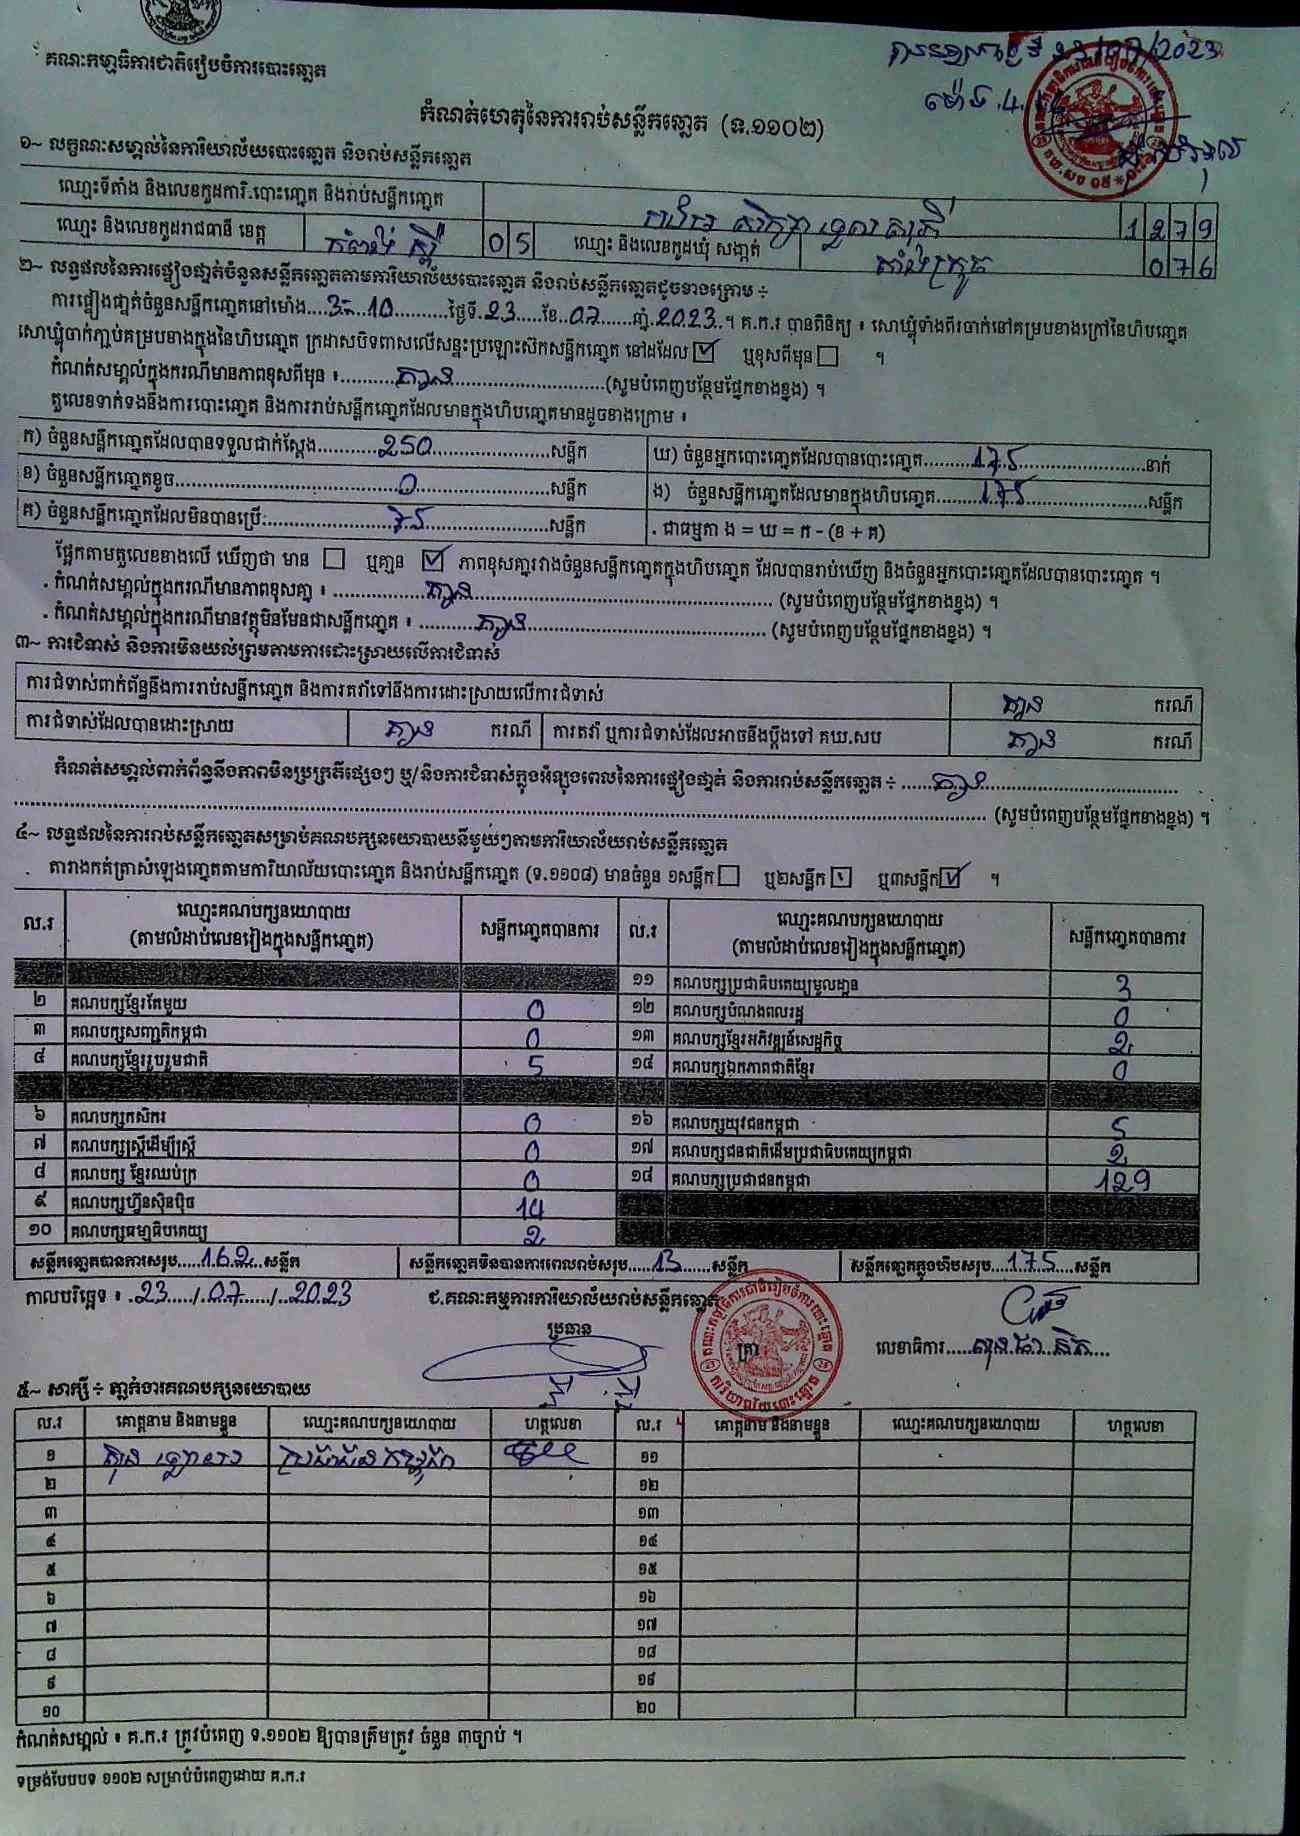 គណៈកម្មាធិការជាតិរៀបចំការបោះឆ្នោត
23/07/2023
ម៉ោង 4.
កំណត់ហេតុនៃការរាប់សន្លឹកឆ្នោត (ទ.១១០២)
១~ លក្ខណៈសម្គាល់នៃការិយាល័យបោះឆ្នោត និងរាប់សន្លឹកឆ្នោត
ឈ្មោះទីតាំង និងលេខកូដការិ.បោះឆ្នោត និងរាប់សន្លឹកឆ្នោត 1279
ឈ្មោះ និងលេខកូដរាជធានី ខេត្ត កំពង់ ស្ពឺ 05 ឈ្មោះ និងលេខកូដឃុំ សង្កាត់ 076
២~ លទ្ធផលនៃការផ្ទៀងផ្ទាត់ចំនួនសន្លឹកឆ្នោតតាមការិយាល័យបោះឆ្នោត និងរាប់សន្លឹកឆ្នោតដូចខាងក្រោម ÷
ការផ្ទៀងផ្ទាត់ចំនួនសន្លឹកឆ្នោតនៅម៉ោង...3-10...ថ្ងៃទី.23...ខែ..07...ឆ្នាំ.2023..។ គ.ក.រ បានពិនិត្យ ៖ សោឃ្លុំទាំងពីរចាក់នៅគម្របខាងក្រៅនៃហិបឆ្នោត
សោឃ្លុំចាក់ភ្ជាប់គម្របខាងក្នុងនៃហិបឆ្នោត ក្រដាសបិទពាសលើសន្ទះប្រឡោះសិកសន្លឹកឆ្នោត នៅដដែល ☑ ឬខុសពីមុន ☐ ។
កំណត់សម្គាល់ក្នុងករណីមានភាពខុសពីមុន ៖...គ្មាន...(សូមបំពេញបន្ថែមផ្នែកខាងខ្នង) ។
តួលេខទាក់ទងនឹងការបោះឆ្នោត និងការរាប់សន្លឹកឆ្នោតដែលមានក្នុងហិបឆ្នោតមានដូចខាងក្រោម ៖
ក) ចំនួនសន្លឹកឆ្នោតដែលបានទទួលជាក់ស្តែង...250...សន្លឹក ឃ) ចំនួនអ្នកបោះឆ្នោតដែលបានបោះឆ្នោត...175...នាក់
ខ) ចំនួនសន្លឹកឆ្នោតខូច...0...សន្លឹក ង) ចំនួនសន្លឹកឆ្នោតដែលមានក្នុងហិបឆ្នោត...175...សន្លឹក
គ) ចំនួនសន្លឹកឆ្នោតដែលមិនបានប្រើ:...75...សន្លឹក . ជាធម្មតា ង = ឃ = ក - (ខ + គ)
ផ្អែកតាមតួលេខខាងលើ ឃើញថា មាន ☐ ឬគ្មាន ☑ ភាពខុសគ្នារវាងចំនួនសន្លឹកឆ្នោតក្នុងហិបឆ្នោត ដែលបានរាប់ឃើញ និងចំនួនអ្នកបោះឆ្នោតដែលបានបោះឆ្នោត ។
. កំណត់សម្គាល់ក្នុងករណីមានភាពខុសគ្នា ៖ ...គ្មាន... (សូមបំពេញបន្ថែមផ្នែកខាងខ្នង) ។
. កំណត់សម្គាល់ក្នុងករណីមានវត្ថុមិនមែនជាសន្លឹកឆ្នោត ៖ ...គ្មាន... (សូមបំពេញបន្ថែមផ្នែកខាងខ្នង) ។
៣~ ការជំទាស់ និងការមិនយល់ព្រមតាមការដោះស្រាយលើការជំទាស់
ការជំទាស់ពាក់ព័ន្ធនឹងការរាប់សន្លឹកឆ្នោត និងការតវ៉ាទៅនឹងការដោះស្រាយលើការជំទាស់ គ្មាន ករណី
ការជំទាស់ដែលបានដោះស្រាយ គ្មាន ករណី ការតវ៉ា ឬការជំទាស់ដែលអាចនឹងប្តឹងទៅ គឃ.សប គ្មាន ករណី
កំណត់សម្គាល់ពាក់ព័ន្ធនឹងភាពមិនប្រក្រតីផ្សេងៗ ឬ/និងការជំទាស់ក្នុងអំឡុងពេលនៃការផ្ទៀងផ្ទាត់ និងការរាប់សន្លឹកឆ្នោត ÷ ...គ្មាន...
(សូមបំពេញបន្ថែមផ្នែកខាងខ្នង) ។
៤~ លទ្ធផលនៃការរាប់សន្លឹកឆ្នោតសម្រាប់គណបក្សនយោបាយនីមួយៗតាមការិយាល័យរាប់សន្លឹកឆ្នោត
តារាងកត់ត្រាសំឡេងឆ្នោតតាមការិយាល័យបោះឆ្នោត និងរាប់សន្លឹកឆ្នោត (ទ.១១០៨) មានចំនួន ១សន្លឹក ☐ ឬ២សន្លឹក ☐ ឬ៣សន្លឹក ☑ ។
ល.រ ឈ្មោះគណបក្សនយោបាយ (តាមលំដាប់លេខរៀងក្នុងសន្លឹកឆ្នោត) សន្លឹកឆ្នោតបានការ ល.រ ឈ្មោះគណបក្សនយោបាយ (តាមលំដាប់លេខរៀងក្នុងសន្លឹកឆ្នោត) សន្លឹកឆ្នោតបានការ
១១ គណបក្សប្រជាធិបតេយ្យមូលដ្ឋាន 3
២ គណបក្សខ្មែរតែមួយ 0 ១២ គណបក្សបំណងពលរដ្ឋ 0
៣ គណបក្សសញ្ជាតិកម្ពុជា 0 ១៣ គណបក្សខ្មែរអភិវឌ្ឍន៍សេដ្ឋកិច្ច 2
៤ គណបក្សខ្មែររួបរួមជាតិ 5 ១៤ គណបក្សឯកភាពជាតិខ្មែរ 0
៦ គណបក្សកសិករ 0 ១៦ គណបក្សយុវជនកម្ពុជា 5
៧ គណបក្សស្ត្រីដើម្បីស្ត្រី 0 ១៧ គណបក្សជនជាតិដើមប្រជាធិបតេយ្យកម្ពុជា 2
៨ គណបក្ស ខ្មែរឈប់ក្រ 0 ១៨ គណបក្សប្រជាជនកម្ពុជា 129
៩ គណបក្សហ៊្វុនស៊ិនប៉ិច 14
១០ គណបក្សធម្មាធិបតេយ្យ 2
សន្លឹកឆ្នោតបានការសរុប...162...សន្លឹក សន្លឹកឆ្នោតមិនបានការពេលរាប់សរុប...13...សន្លឹក សន្លឹកឆ្នោតក្នុងហិបសរុប...175...សន្លឹក
កាលបរិច្ឆេទ ៖ .23.../.07.../..2023 ជ.គណៈកម្មការការិយាល័យរាប់សន្លឹកឆ្នោត
ប្រធាន ត្រា លេខាធិការ
៥~ សាក្សី ÷ ភ្នាក់ងារគណបក្សនយោបាយ
ល.រ គោត្តនាម និងនាមខ្លួន ឈ្មោះគណបក្សនយោបាយ ហត្ថលេខា ល.រ គោត្តនាម និងនាមខ្លួន ឈ្មោះគណបក្សនយោបាយ ហត្ថលេខា
១ ប្រជាជនកម្ពុជា ១១
២ ១២
៣ ១៣
៤ ១៤
៥ ១៥
៦ ១៦
៧ ១៧
៨ ១៨
៩ ១៩
១០ ២០
កំណត់សម្គាល់ ៖ គ.ក.រ ត្រូវបំពេញ ទ.១១០២ ឱ្យបានត្រឹមត្រូវ ចំនួន ៣ច្បាប់ ។
ទម្រង់បែបបទ ១១០២ សម្រាប់បំពេញដោយ គ.ក.រ